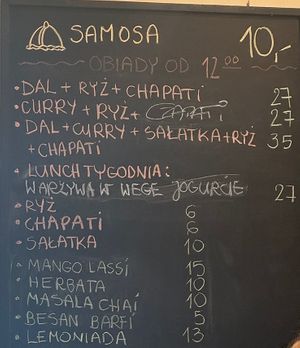 SAMOSA 10,-
OBIADY OD 12:00
• DAL + RYŻ + CHAPATI 27
• CURRY + RYŻ + CHAPATI 27
• DAL + CURRY + SAŁATKA + RYŻ 35
+ CHAPATI
• LUNCH TYGODNIA:
WARZYWA W WEGE JOGURCIE 27
• RYŻ 6
• CHAPATI 6
• SAŁATKA 10
• MANGO LASSI 15
• HERBATA 10
• MASALA CHAI 10
• BESAN BARFI 5
• LEMONIADA 13